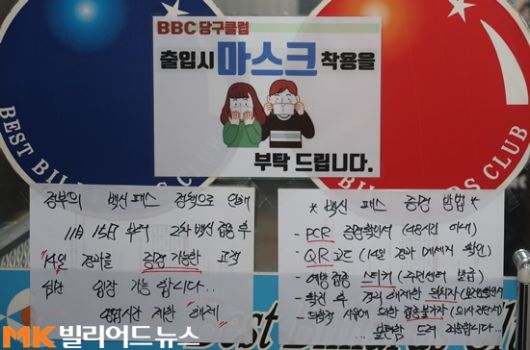 BBC 당구클럽
출입시 마스크 착용을
부탁 드립니다.
BEST BIL
DS CLUB
정부의 백신 패스 정책으로 인해
11월 15일 부터 2차 백신 접종 후
"14일" 경과를 증명 가능한 고객
입장 가능 합니다...
영업시간 제한 "해제"
* 백신 패스 증명 방법 *
- PCR 음성확인서 (48시간 이내)
- QR 코드 (14일 경과 메세지 확인)
- 예방접종 스티커 (주민센터 발급)
- 확진 후 격리 해제한 완치자
- 의학적 사유에 의한 접종불가자 (의사 진단서)
드려 죄송합니다...
MK빌리어드뉴스